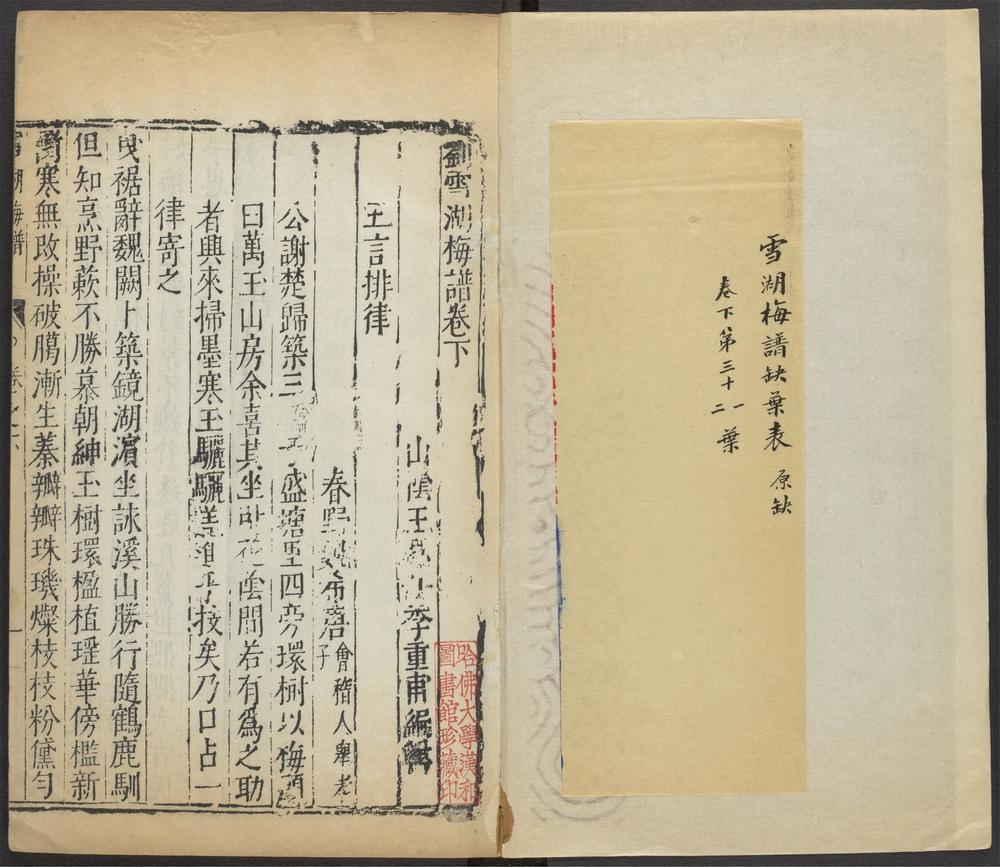 雪湖梅譜缺葉表 原缺
卷下第三十一二葉
劉雪湖梅譜卷下
山陰王 李重甫編輯
五言排律
春野 希 會稽人舉老子
公謝楚歸築三 盛塘里四旁環樹以梅 
曰萬玉山房余喜其坐卧花陰間若有爲之助
者興來掃墨寒玉驪驪 進乎技矣乃口占一
律寄之
曳裾辭魏闕卜築鏡湖濱坐詠溪山勝行隨鶴鹿馴
但知烹野蔌不勝慕朝紳玉樹環楹植瑶華傍檻新
衝寒無改操破臈漸生蓁瓣瓣珠璣燦枝枝粉黛勻
雪湖梅譜 卷之下 一
哈佛大學漢和圖書館珍藏印